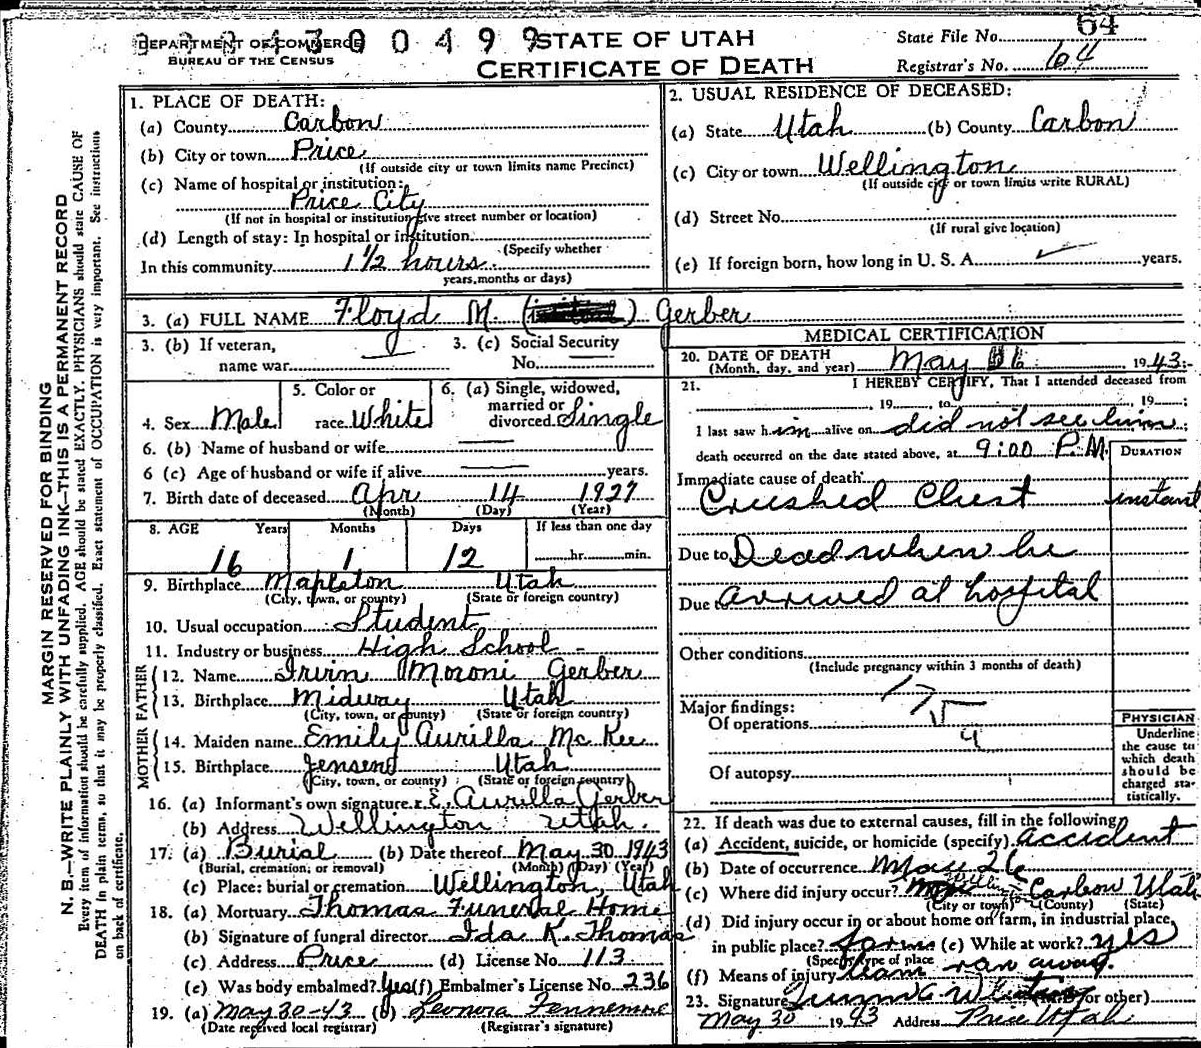 DEPARTMENT OF COMMERCE
BUREAU OF THE CENSUS
0 0 4 9 9
STATE OF UTAH
CERTIFICATE OF DEATH
State File No. 64
Registrar's No. 64
MARGIN RESERVED FOR BINDING
N. B.—WRITE PLAINLY WITH UNFADING INK—THIS IS A PERMANENT RECORD
Every item of information should be carefully supplied. AGE should be stated EXACTLY. PHYSICIANS should state CAUSE OF
DEATH in plain terms, so that it may be properly classified. Exact statement of OCCUPATION is very important. See instructions
on back of certificate.
1. PLACE OF DEATH:
(a) County Carbon
(b) City or town Price
(If outside city or town limits name Precinct)
(c) Name of hospital or institution:
Price City
(If not in hospital or institution give street number or location)
(d) Length of stay: In hospital or institution
(Specify whether
In this community 1 1/2 hours
years, months or days)
2. USUAL RESIDENCE OF DECEASED:
(a) State Utah (b) County Carbon
(c) City or town Wellington
(If outside city or town limits write RURAL)
(d) Street No.
(If rural give location)
(e) If foreign born, how long in U. S. A. years.
3. (a) FULL NAME Floyd M. ( ) Gerber
3. (b) If veteran,
name war
3. (c) Social Security
No.
4. Sex Male
5. Color or
race White
6. (a) Single, widowed,
married or
divorced Single
6. (b) Name of husband or wife
6 (c) Age of husband or wife if alive years.
7. Birth date of deceased Apr 14 1927
(Month) (Day) (Year)
8. AGE Years Months Days If less than one day
16 1 12 hr. min.
9. Birthplace Mapleton Utah
(City, town, or county) (State or foreign country)
10. Usual occupation Student
11. Industry or business High School
FATHER
12. Name Irvin Moroni Gerber
13. Birthplace Midway Utah
(City, town, or county) (State or foreign country)
MOTHER
14. Maiden name Emily Aurilla McKee
15. Birthplace Jensend Utah
(City, town, or county) (State or foreign country)
16. (a) Informant's own signature E. Aurilla Gerber
(b) Address Wellington Utah.
17. (a) Burial (b) Date thereof May 30 1943
(Burial, cremation, or removal) (Month) (Day) (Year)
(c) Place: burial or cremation Wellington, Utah
18. (a) Mortuary Thomas Funeral Home
(b) Signature of funeral director Ida K. Thomas
(c) Address Price (d) License No. 113
(e) Was body embalmed? Yes (f) Embalmer's License No. 236
19. (a) May 30-43 (b) Leonora Fennemore
(Date received local registrar) (Registrar's signature)
MEDICAL CERTIFICATION
20. DATE OF DEATH
(Month, day, and year) May 26 1943
21. I HEREBY CERTIFY, That I attended deceased from
19 to 19 ;
I last saw him alive on did not see him ;
death occurred on the date stated above, at 9:00 P.M.
DURATION
Immediate cause of death:
Crushed Chest instant
Due to Dead when he
Due to arrived at hospital
Other conditions
(Include pregnancy within 3 months of death)
Major findings:
Of operations
Of autopsy
PHYSICIAN
Underline
the cause to
which death
should be
charged sta-
tistically.
22. If death was due to external causes, fill in the following
(a) Accident, suicide, or homicide (specify) accident
(b) Date of occurrence May 26
(c) Where did injury occur? Carbon Utah
(City or town) (County) (State)
(d) Did injury occur in or about home on farm, in industrial place,
in public place? farm (e) While at work? yes
(Specify type of place
(f) Means of injury team ran away.
23. Signature (M.D. or other)
May 30 1943 Address Price Utah